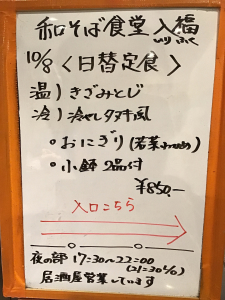 和そば食堂 入福
いり ふく
10/8 〈日替定食〉
温) きざみとじ
冷) 冷やしタヌキ風
○ おにぎり (若菜わかめ)
○ 小鉢 2品付
¥850.-
入口こちら
夜の部 17:30〜22:00
(21:30 L/O)
居酒屋営業しています